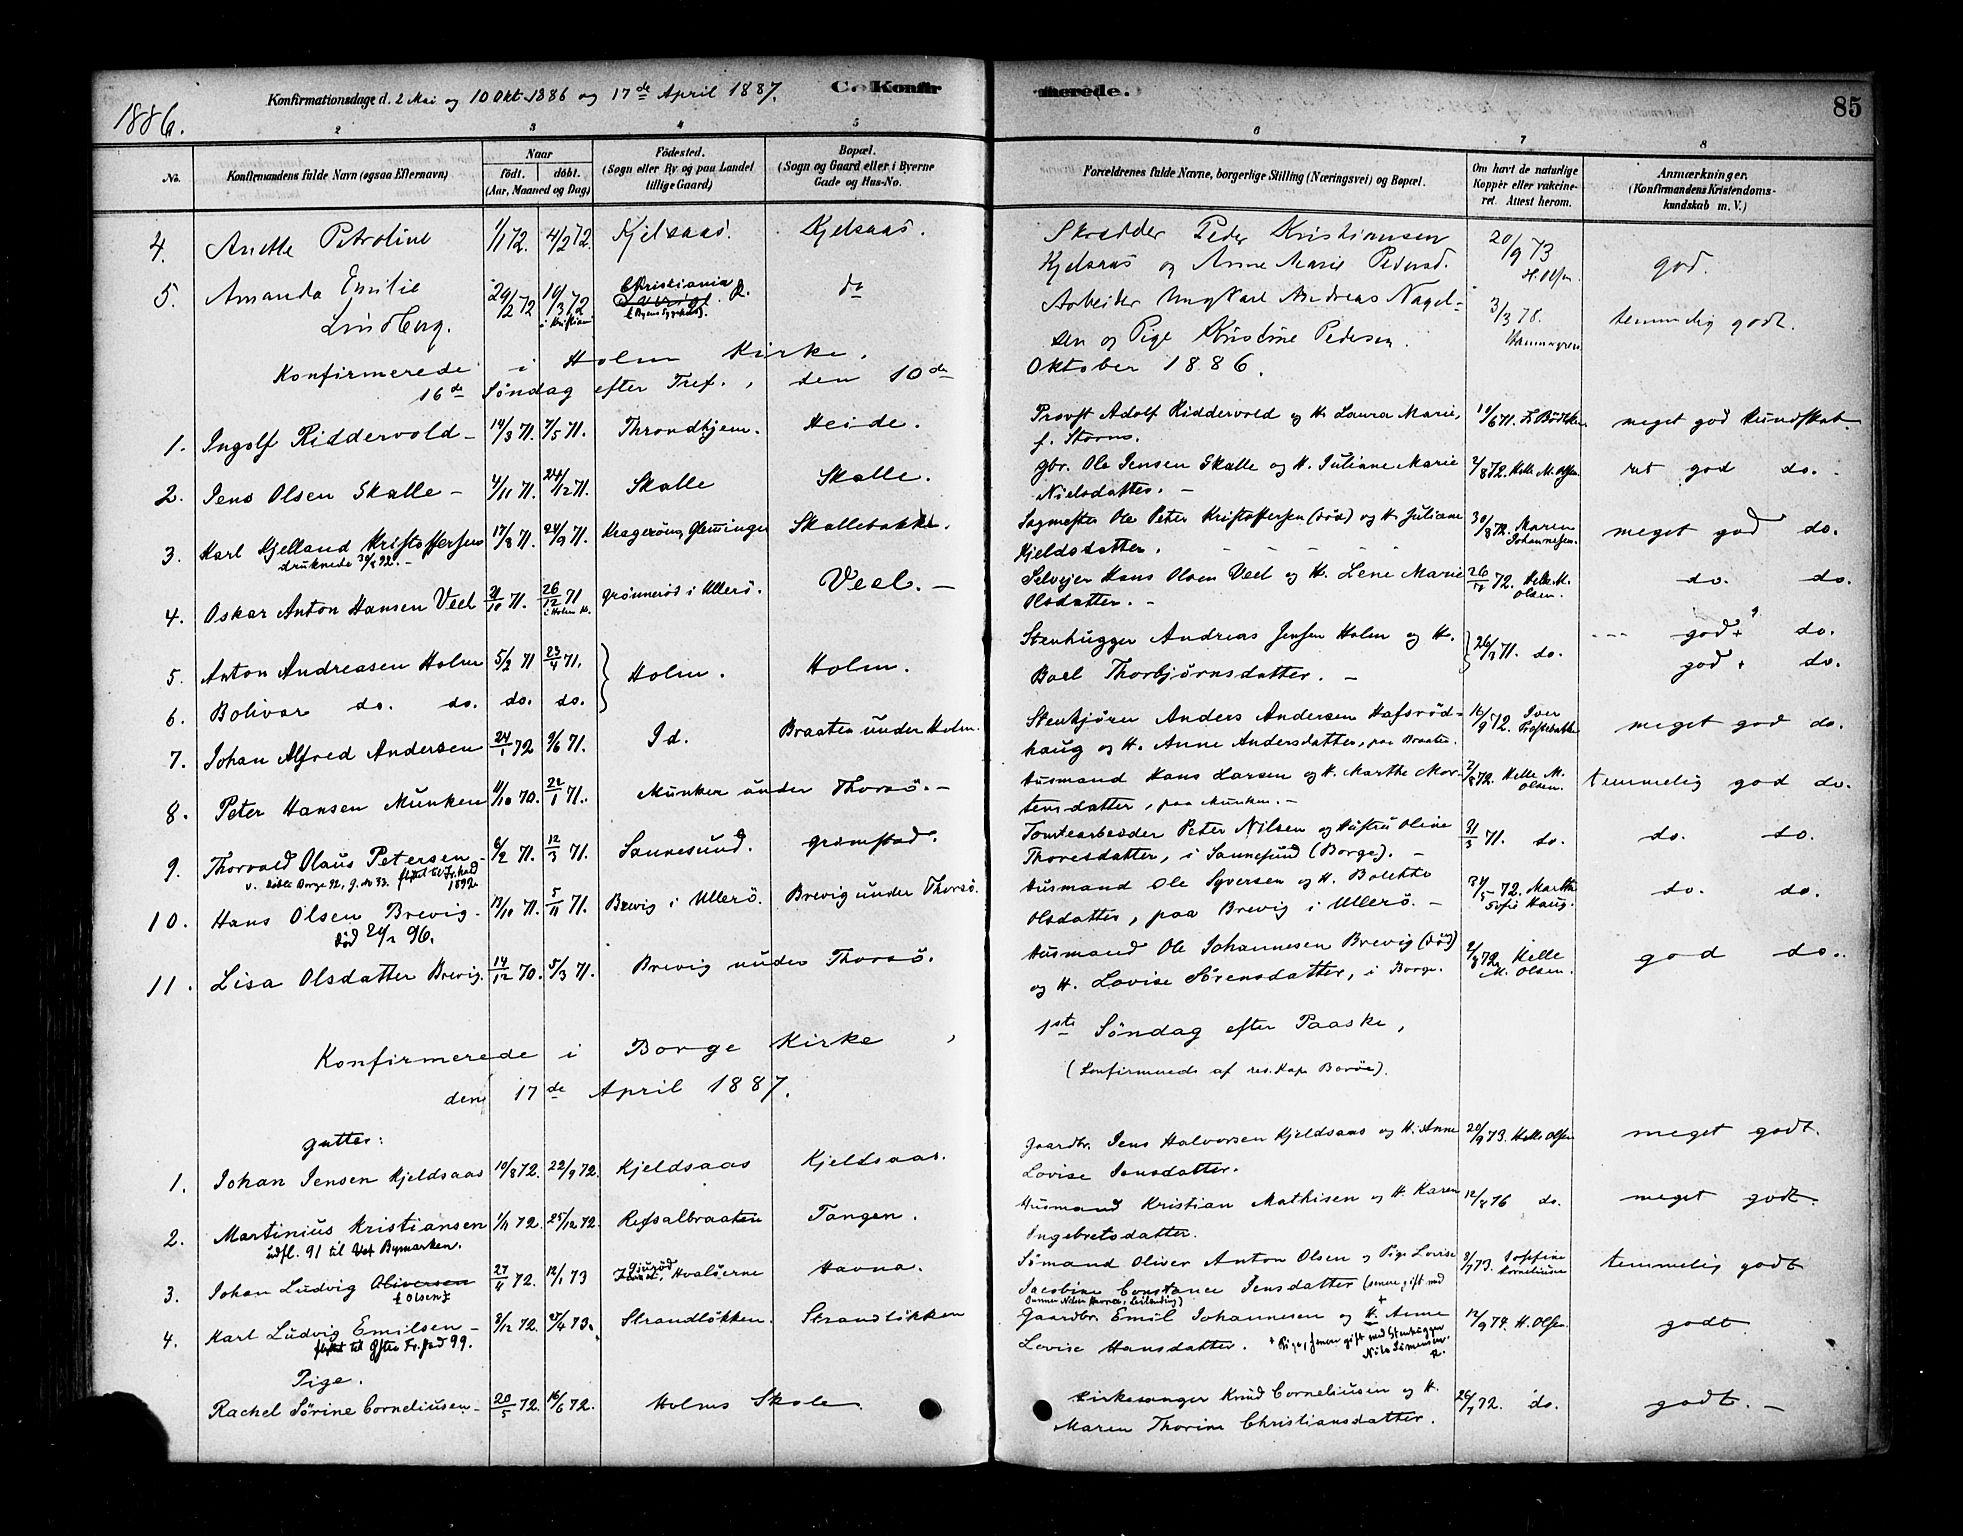 1886.
Konfirmationsdage d. 2 Mai og 10 Okt. 1886 og 17de April 1887.
C. Konfirmerede.
85
2 3 4 5 6 7 8
No. Konfirmandens fulde Navn (ogsaa Efternavn) Naar født. døbt. (Aar, Maaned og Dag) Fødested. (Sogn eller By og paa Landet tillige Gaard) Bopæl. (Sogn og Gaard eller i Byerne Gade og Hus-No. Forældrenes fulde Navne, borgerlige Stilling (Næringsvei) og Bopæl. Om havt de naturlige Kopper eller vakcineret. Attest herom. Anmærkninger. (Konfirmandens Kristendomskundskab m. V.)
4. Anette Petroline 1/1 72. 4/2 72. Kjelsaas. Kjelsaas. Skrædder Peder Kristiansen 20/9 73
Kjelsaas og Anne Marie Pedersd. H. Olsen god.
5. Amanda Emilie 29/2 72 19/3 72 Christiania do Arbeider Ungkarl Andreas Nagel- 3/3 78.
Lindberg. i Kristian sen og Pige Kristine Pedersen. temmelig godt.
Konfirmerede i Holm Kirke. Oktober 1886.
16de Søndag efter Tref., den 10de
1. Ingolf Riddervold - 14/3 71. 7/5 71. Throndhjem. Heide. Provst Adolf Riddervold og H. Laura Marie, 10/6 71. meget god Kundskab.
f. Storm.
2. Jens Olsen Skalle - 4/11 71. 24/12 71. Skalle Skalle. gbr. Ole Jensen Skalle og H. Juliane Marie 2/8 72. Helle M. Olsen ret god do.
Nielsdatter. -
3. Karl Kjelland Kristoffersen 17/8 71. 24/9 71. Kragerøen, Glemminge Skallebakke. Sagmester Ole Peter Kristoffersen (død) og H. Juliane 30/8 72. Maren Johannesen. meget god do.
druknede 30/8 92. - Kjeldsdatter.
4. Oskar Anton Hansen Veel 21/10 71. 26/12 71 i Holm K. Grønnerød i Ullerø. Veel. - Selvejer Hans Olsen Veel og H. Lene Marie 26/ 72. Helle M. Olsen. do. do.
Olsdatter. -
5. Anton Andreasen Holm 5/2 71 23/4 71. Holm. Holm. Stenhugger Andreas Jensen Holm og H. 26/ 71. do. god + do.
6. Bolivar do. do. do. do. Boel Thorbjørnsdatter. - god + do.
7. Johan Alfred Andersen 24/1 72 9/6 71. Id. Braaten under Holm. Stenkjører Anders Andersen Hafsrød- 16/9 72. Iver meget god do.
haug og H. Anne Andersdatter, paa Braaten.
8. Peter Hansen Munken 11/10 70. 22/1 71. Munken under Thorsø. - Husmand Hans Larsen og H. Marthe Mor- 2/8 72. Helle M. Olsen. temmelig god do.
tensdatter, paa Munken. -
9. Thorvald Olaus Petersen - 6/2 71. 12/3 71. Sannesund. Grimstad. Tomtearbeider Peter Nilsen og Hustru Oline 31/3 71. do. do. do.
flyttet til Fr.stad 1892. Thoresdatter, i Sannesund (Borge). -
10. Hans Olsen Brevig. 13/10 71. 5/11 71. Brevig i Ullerø. Brevig under Thorsø. Husmand Ole Syversen og H. Bolette 72. Martha Sofie Haug. do. do.
død 24/2 96. Olsdatter, paa Brevig i Ullerø. -
11. Lisa Olsdatter Brevig. 14/12 70. 5/3 71. Brevig under Thorsø. Husmand Ole Johannesen Brevig (død) 2/8 72 Helle M. Olsen. god do.
og H. Lovise Sørensdatter, i Borge.
Konfirmerede i Borge Kirke, 1ste Søndag efter Paaske,
den 17de April 1887. (Konfirmerede af res. Kap. Borøe).
gutter:
1. Johan Jensen Kjeldsaas 10/8 72. 22/9 72. Kjeldsaas Kjeldsaas. Gaardbr. Jens Halvorsen Kjeldsaas og H. Anne 20/9 73. Helle Olsen meget godt.
Lovise Jensdatter.
2. Martinius Kristiansen 1/11 72. 25/12 72. Refsalbraaten Tangen. Husmand Kristian Mathisen og H. Karen 12/8 76 do. meget godt.
udfl. 91 til Bymarken. Ingebretsdatter.
3. Johan Ludvig Oliversen 27/4 72. 12/1 73 Hvaløerne Havna. Sømand Oliver Anton Olsen og Pige Lovise 3/ 73. Josefine Korneliusen temmelig godt
t Olsen t Jacobine Constance Jensdatter (senere gift med
4. Karl Ludvig Emilsen - 8/12 72. 25/4 73. Strandløkken. Strandløkken Gaardbr. Emil Johannesen og H. Anne 12/9 74. H. Olsen. godt
flyttet til Fr.stad 99. Lovise Hansdatter. + Pige, senere gift med Stenhugger Nils Simensen
Pige.
Rachel Sørine Corneliusen - 20/5 72. 16/6 72. Holms Skole Kirkesanger Knud Corneliusen og H. 26/ 72. do. godt. -
Maren Thorine Christiansdatter.